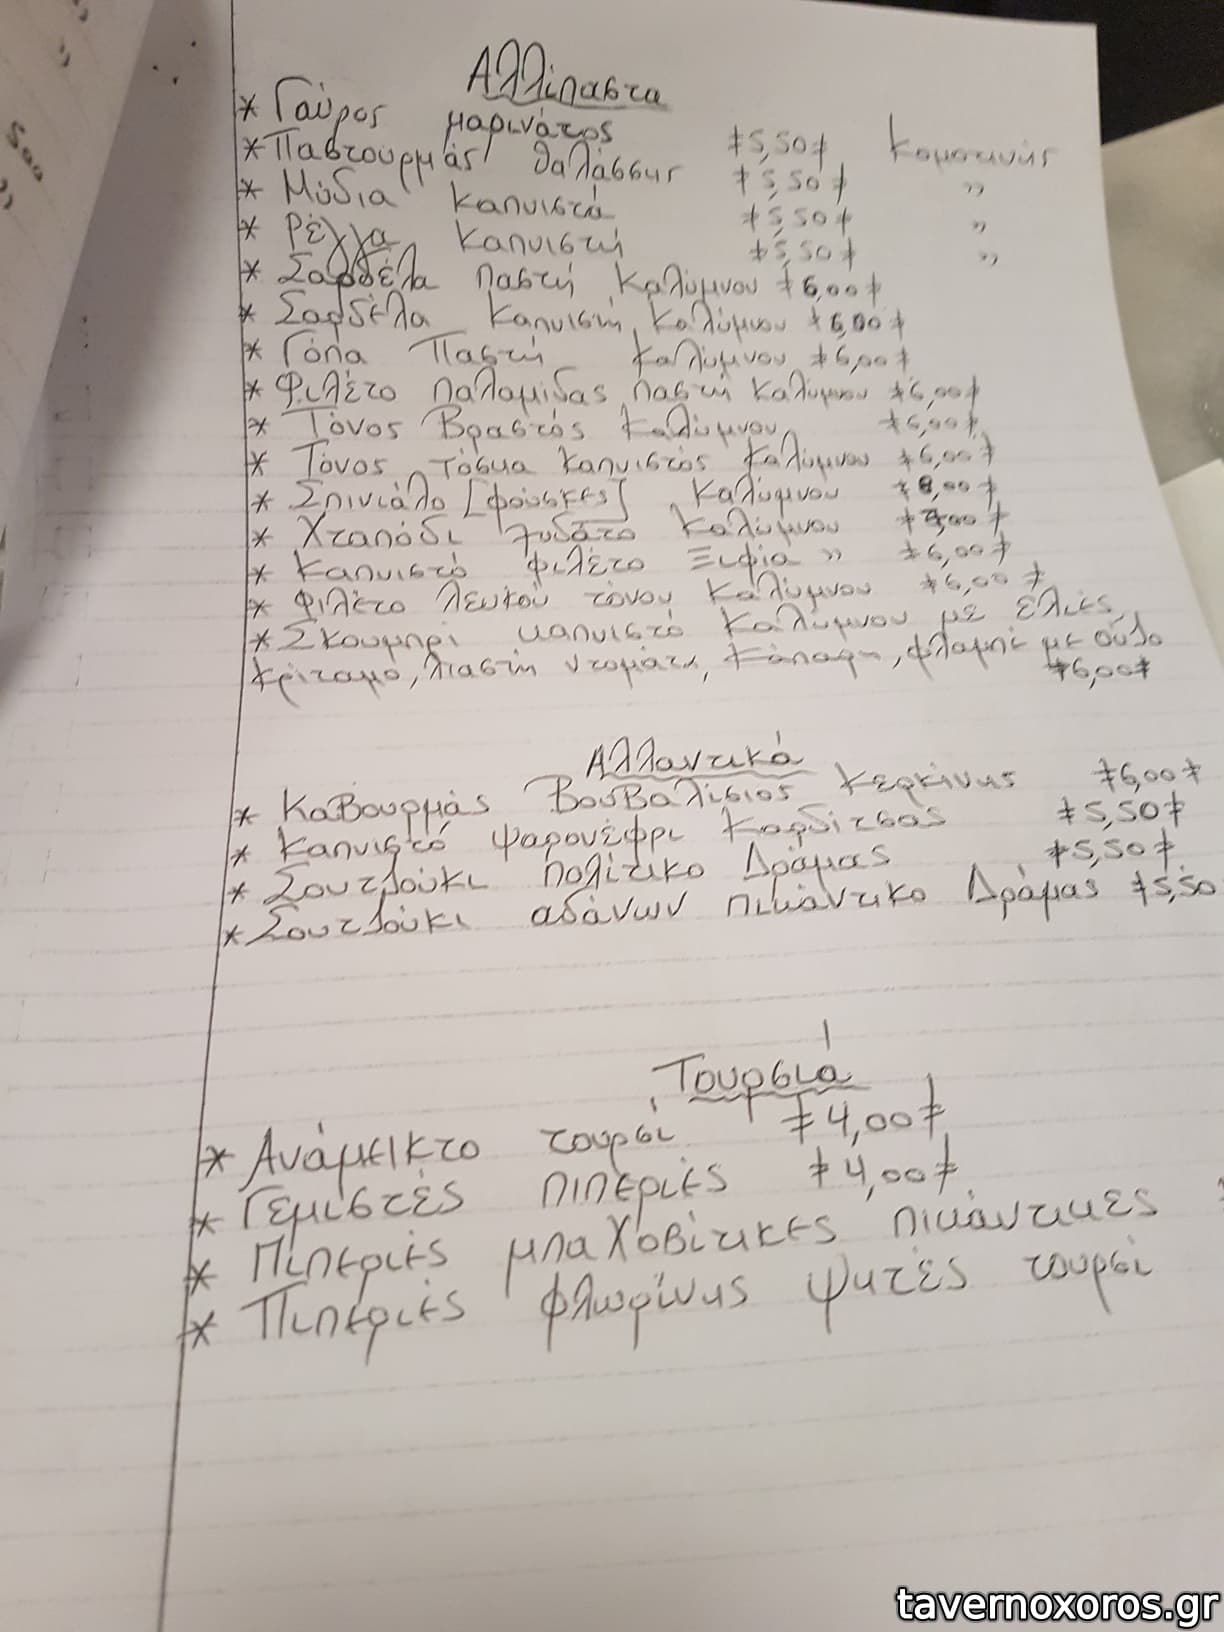 Αλλίπαστα
* Γαύρος μαρινάτος ‡5,50‡ Κομοτινής
* Παστουρμάς θαλάσσης ‡5,50‡ "
* Μύδια καπνιστά ‡5,50‡ "
* Ρέγγα καπνιστή ‡5,50‡ "
* Σαρδέλα παστή Καλύμνου ‡6,00‡
* Σαρδέλα καπνιστή Καλύμνου ‡6,00‡
* Γόπα Παστή Καλύμνου ‡6,00‡
* Φιλέτο παλαμίδας παστή Καλύμνου ‡6,00‡
* Τόνος Βραστός Καλύμνου ‡6,00‡
* Τόνος τόσμα καπνιστός Καλύμνου ‡6,00‡
* Σπινιάλο [φούσκες] Καλύμνου ‡8,00‡
* Χταπόδι Καλύμνου
* Καπνιστό φιλέτο Ξιφία " ‡6,00‡
* Φιλέτο λευκού τόνου Καλύμνου ‡6,00‡
* Σκουμπρί καπνιστό Καλύμνου με ελιές,
κρίταμο, λιαστή ντομάτα, κάπαρη, με ούζο
‡6,00‡
Αλλαντικά
* Καβουρμάς Βουβαλίσιος Κερκίνης ‡6,00‡
* Καπνιστό ψαρονέφρι Καρδίτσας ‡5,50‡
* Σουτζούκι πολίτικο Δράμας ‡5,50‡
* Σουτζούκι αδάνων πικάντικο Δράμας ‡5,50
Τουρσιά
* Ανάμεικτο τουρσί ‡4,00‡
* Γεμιστές πιπεριές ‡4,00‡
* Πιπεριές μπαχοβίτικες πικάντικες
* Πιπεριές φλωρίνης ψητές τουρσί
500
tavernoxoros.gr